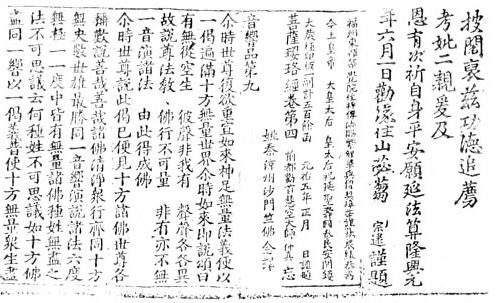 披閱裒茲功德追薦
考妣二親爰及
恩有次祈自身平安願延法算隆興元
年六月一日勸緣住山 宗 謹題
福州東禪等覺院
今上皇帝 太皇太后 皇太后
大藏經印板一副計五百餘函 元祐五年正月 日謹題
菩薩瓔珞經卷第四
姚秦涼州沙門竺佛念譯
音響品第九
尒時世尊復欲重宣如來神足無量法義便以
一偈遍滿十方無量世界尒時如來即說頌曰
有無從空生 彼聲非我有 聲聲各各異
故說尊法教 佛行不可量 非有亦不無
一音演諸法 由此得成佛
尒時世尊說此偈已便見十方諸佛世尊各各
稱歎說善哉善哉諸佛清淨衆行齊同十方
無央數世雄最勝同一音響演說諸法六度
無極一一度中皆有無量諸佛種姓無盡之
法不可思議云何種姓不可思議如十方佛
盡同一響以一偈義善使十方無量衆生盡